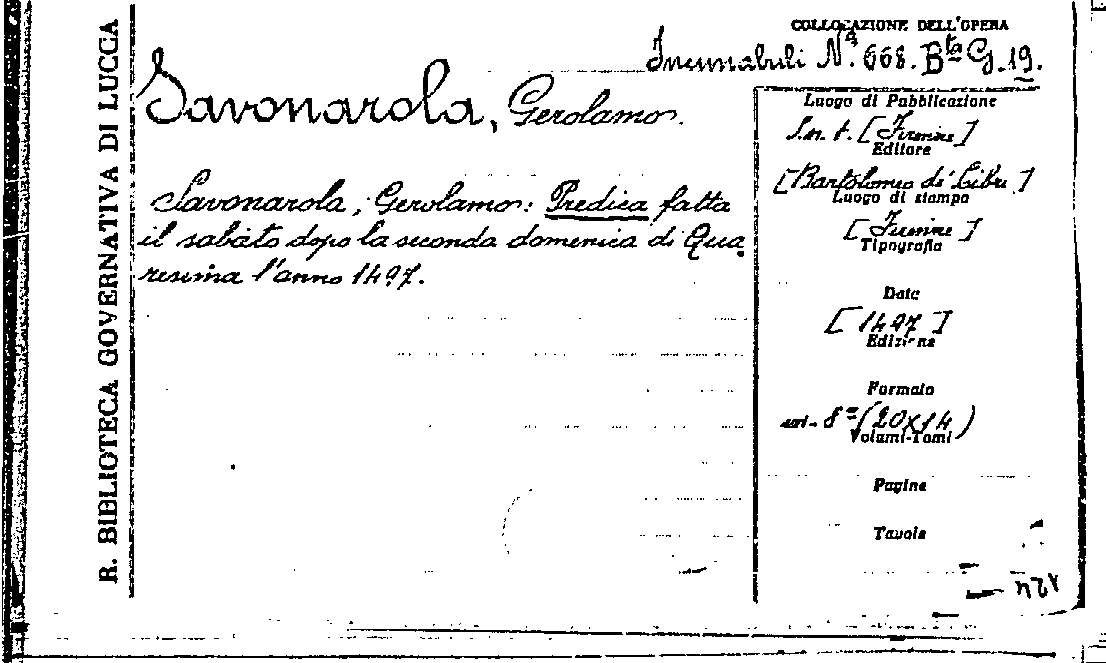 R. BIBLIOTECA GOVERNATIVA DI LUCCA
COLLOCAZIONE DELL'OPERA
Incunabuli Nº. 668. Bta G. 19.
Savonarola, Gerolamo.
Savonarola, Gerolamo: Predica fatta
il sabato dopo la seconda domenica di Qua
resima l'anno 1497.
Luogo di Pubblicazione
S. n. t. [Firenze]
Editore
[Bartolomeo di Libri]
Luogo di stampa
[Firenze]
Tipografia
Data
[1497]
Edizione
Formato
8º (20x14)
Volumi-Tomi
Pagine
Tavole